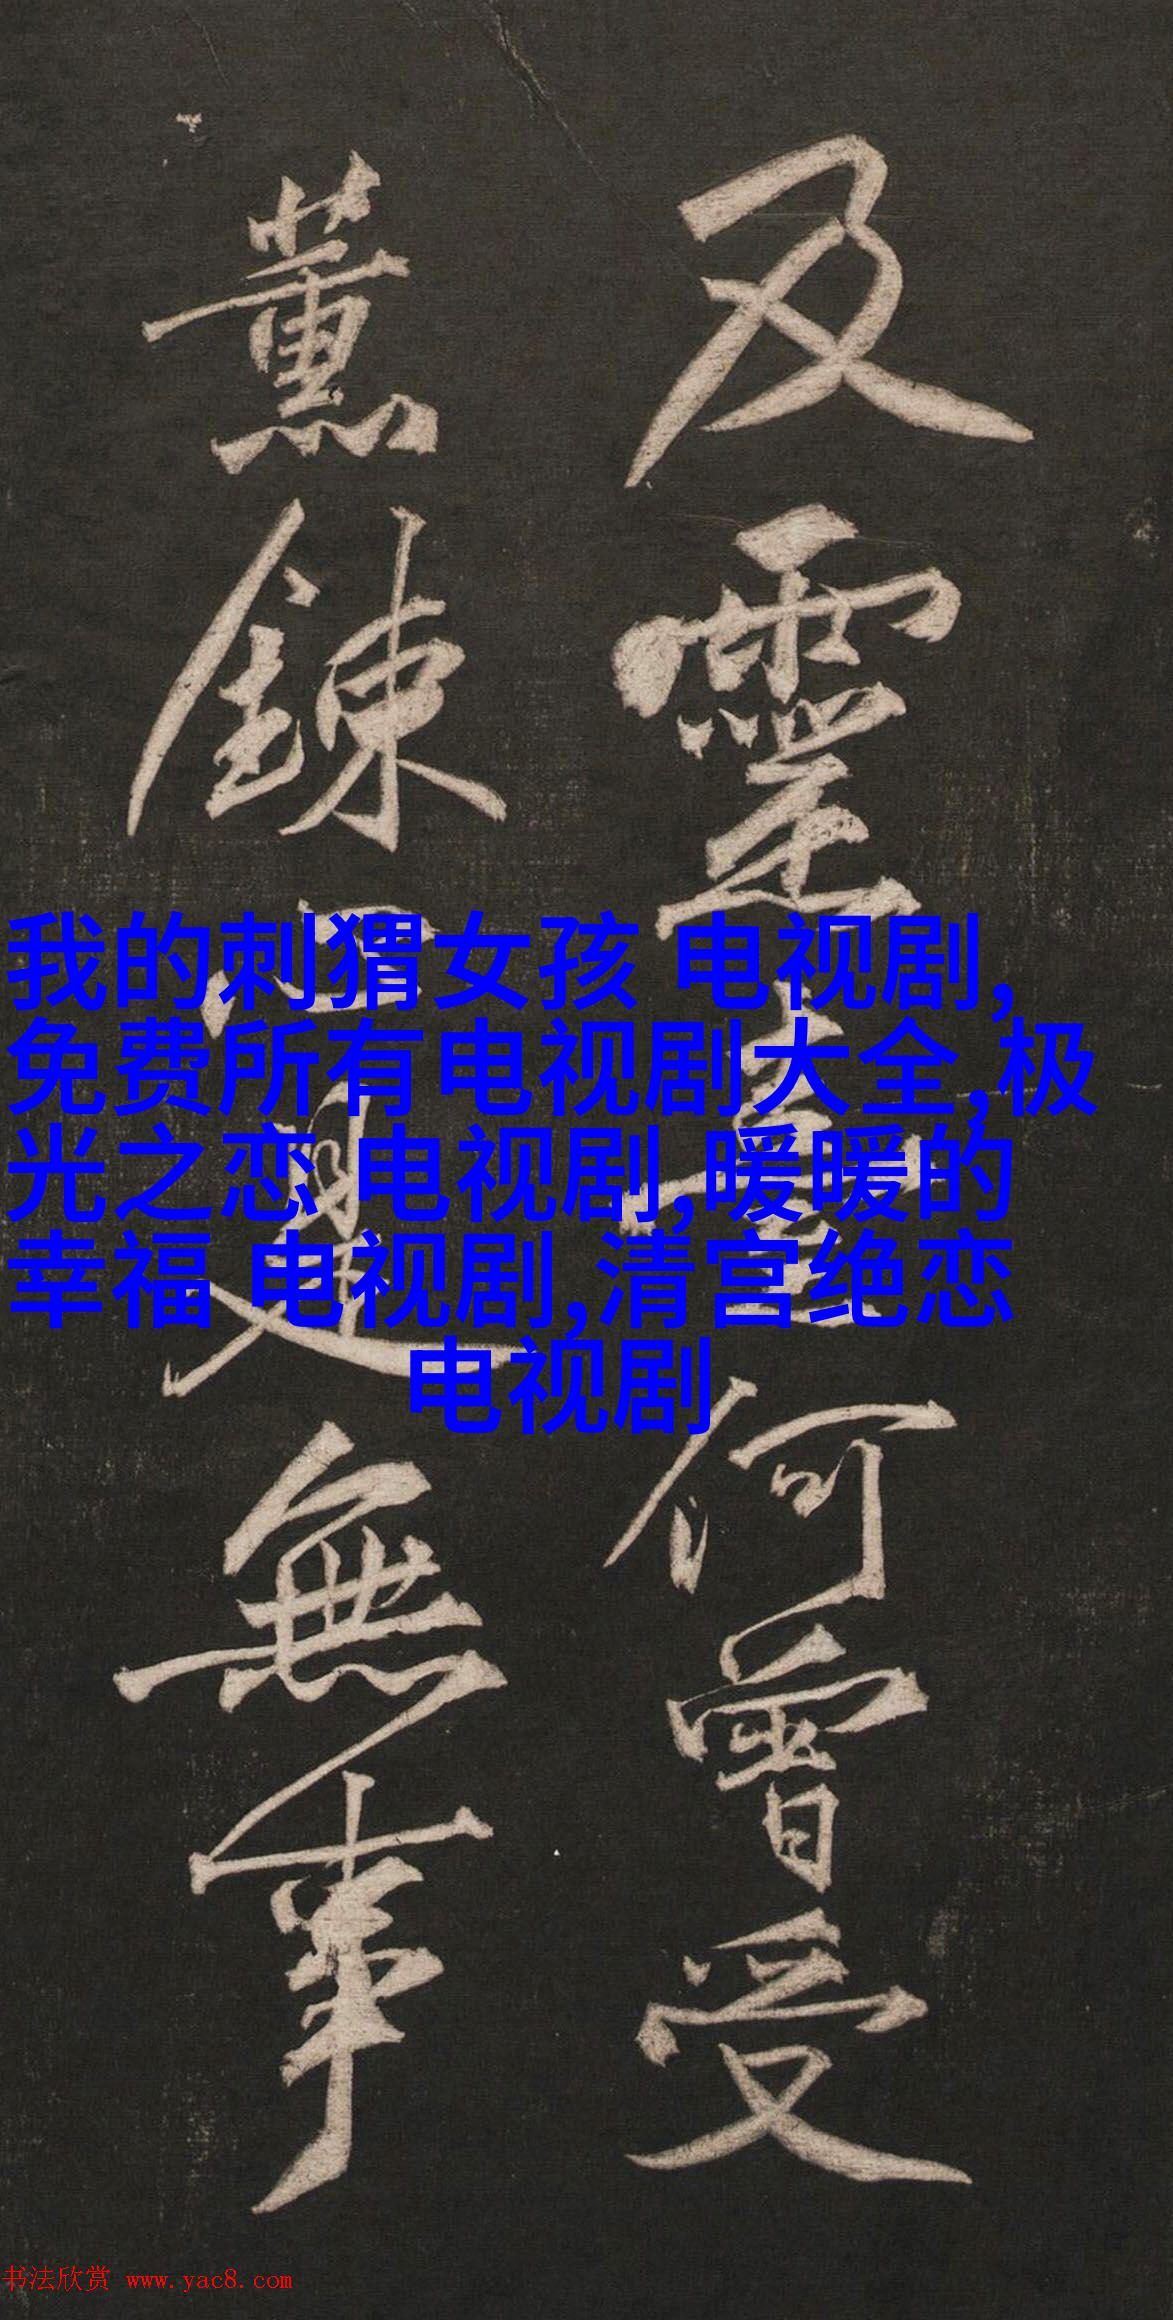 及靈臺何曾受
薰鍊是無事
我的刺猬女孩 电视剧,
免费所有电视剧大全,极
光之恋 电视剧,暖暖的
幸福 电视剧,清宫绝恋
电视剧
书法欣赏 www.yac8.com